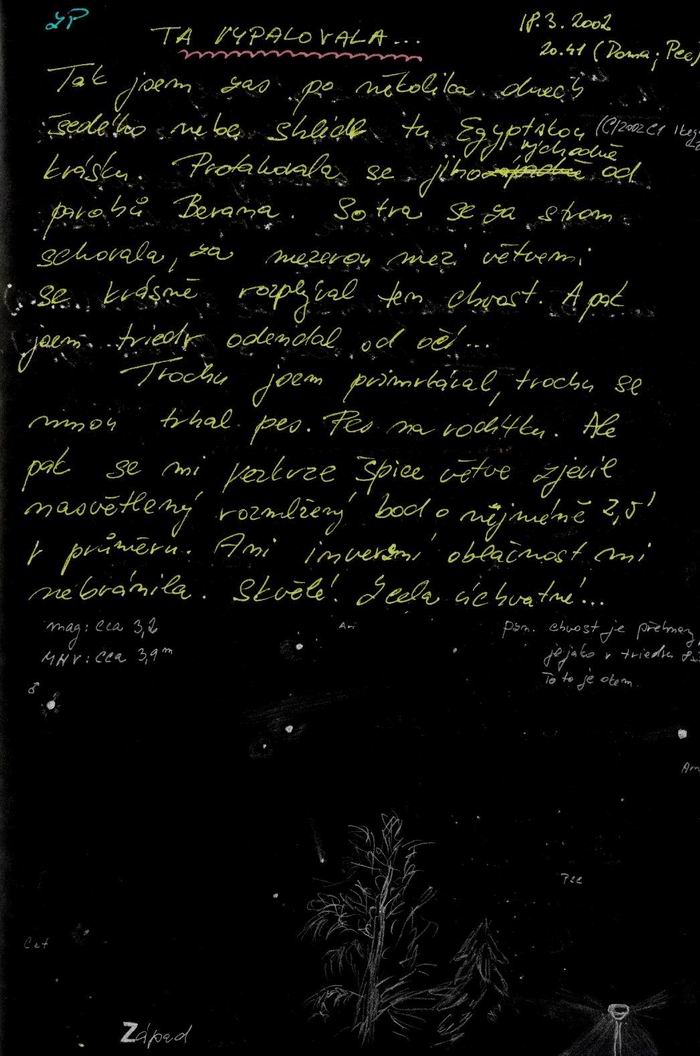 JP
TA VYPALOVALA...
18.3.2002
20.41 (Doma; Pec
Tak jsem zas po několika dnech
šedého nebe shlédl tu Egyptskou (C/2002 C1
krásku. Protahovala se jihovýchodně od
parohů Berana. Sotva se za strom
schovala, za mezerou mezi větvemi
se krásně rozplýval ten chvost. A pak
jsem triedr odendal od očí...
Trochu jsem přimrkával, trochu se
mnou trhal pes. Pes na vodítku. Ale
pak se mi bezkrze špice větve zjevil
nasvětlený rozmlžený bod o nejméně 2,5'
v průměru. Ani inversní oblačnost mi
nebránila. Skvělé! Zcela úchvatné!...
mag: cca 3,2
MHV: cca 3,9m
Ari
Pozn. chvost je
je jako v triedru
Toto je okem.
♂
And
Psc
Cet
Západ